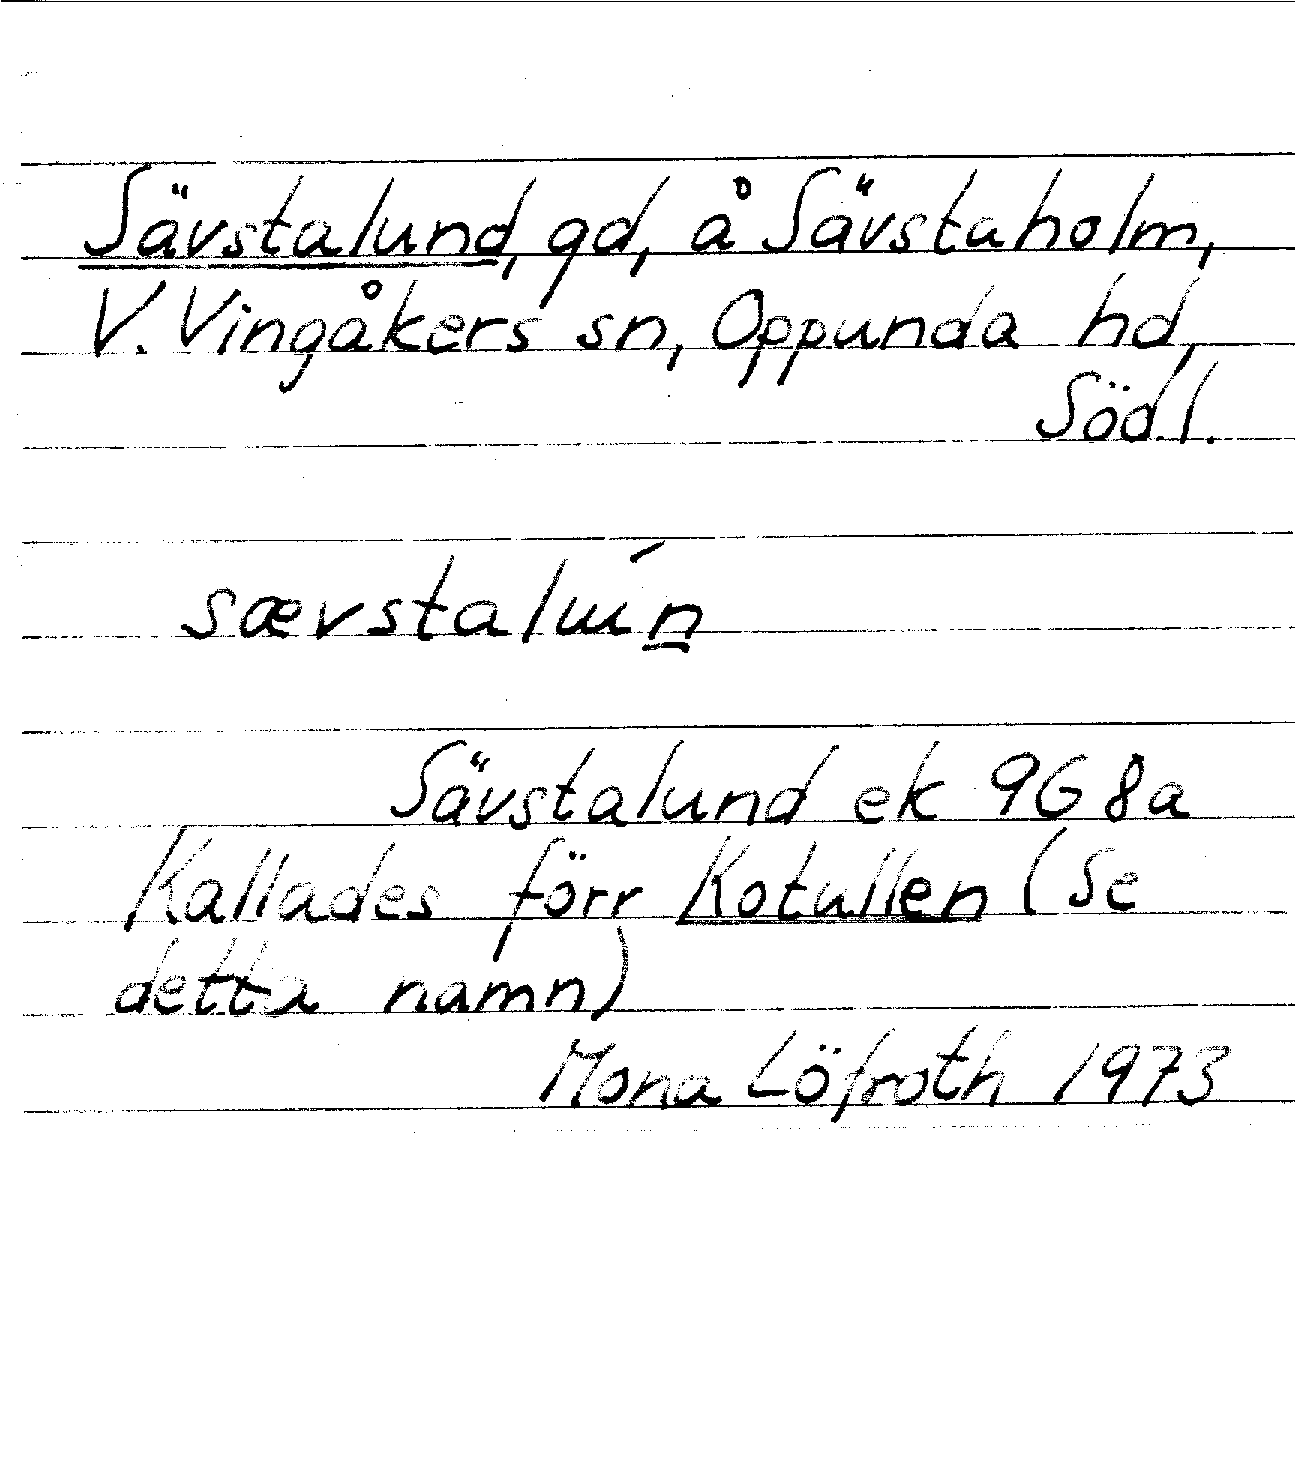 Sävstalund, gd, å Sävstaholm,
V. Vingåkers sn, Oppunda hd,
Södl.
sævstalɯ́n̲
Sävstalund ek 9G 8a
Kallades förr Kotullen (Se
detta namn)
Mona Löfroth 1973